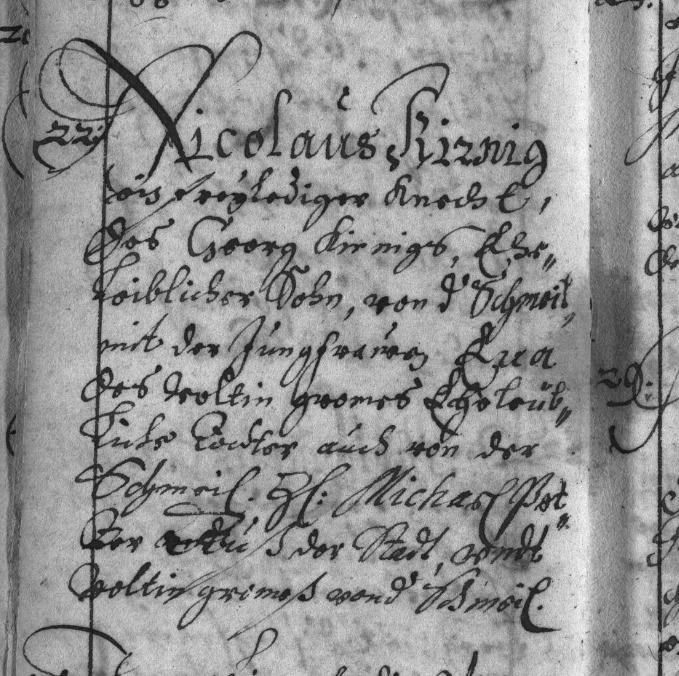 22. Nicolaus Kirnig
ein freylediger Knecht,
des Georg Kirnigs, Ehe„
leiblicher Sohn, von d Schmeil„
mit der Jungfrauen Eva
des Veltin gromes Eheleib„
liche Tochter auch von der
Schmeil. Zl: Michael Pet„
ter auß der Stadt, vndt
Veltin gromeß von d Schmeil.
29.